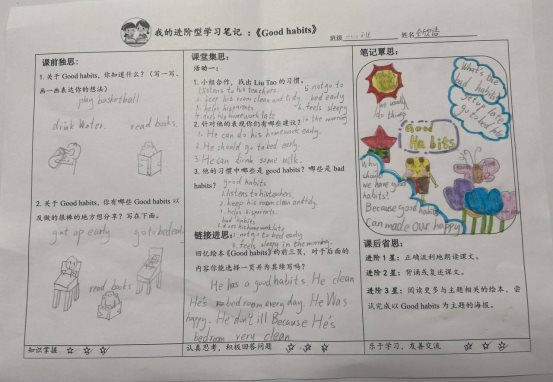 我的进阶型学习笔记 :《Good habits》
班级 姓名
课前独思:
1. 关于 Good habits, 你知道什么? (写一写,
画一画表达你的想法)
play basketball
drink Water.
read books.
2. 关于 Good habits, 你有哪些 Good habits 以
及做的很棒的地方想分享? 写在下面。
get up early
go to bed early
read books
课堂集思:
活动一:
1. 小组合作, 找出 Liu Tao 的习惯。
listens to his teachers.
2. keep his room clean and tidy.
3. helps his parents.
4. does his homework late
5. not go to
bed early
6. feels sleepy
in the morning
2. 针对他的表现你们有哪些建议?
1. He can do his homework early.
2. He should go to bed early.
3. He can drink some milk.
3. 他的习惯中哪些是 good habits? 哪些是 bad
habits?
good habits
1. listens to his teachers.
2. keeps his room clean and tidy.
3. helps his parents.
bad habits
1. does his homework late
2. not go to bed early
3. feels sleepy in the morning.
链接进思:
回忆绘本《Good habits》的前三页, 对于后面的
内容你能选择一页并为其续写吗?
He has a good habits. He clean
He's bedroom every day. He Was
happy. He don't ill Because He's
bedroom very clean.
笔记覃思:
What's the
bad habits?
Get up late
go to bed late
We usually
do things
Good
Habits
Why
should
we have good
habits?
Because good habits
can made our happy
课后省思:
进阶 1 星: 正确流利地朗读课文。
进阶 2 星: 背诵或复述课文。
进阶 3 星: 阅读更多与主题相关的绘本, 尝
试完成以 Good habits 为主题的海报。
知识掌握 ☆ ☆ ☆
认真思考, 积极回答问题 ☆ ☆ ☆
乐于学习, 友善交流 ☆ ☆ ☆